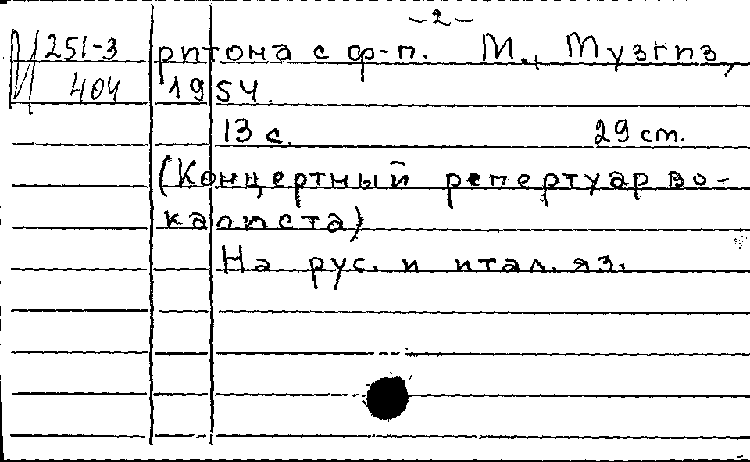 -2-
И 251-3 ритона с ф-п. М., Музгиз,
404 1954.
13 с. 29 см.
(Концертный репертуар во-
калиста)
На рус. и итал. яз.